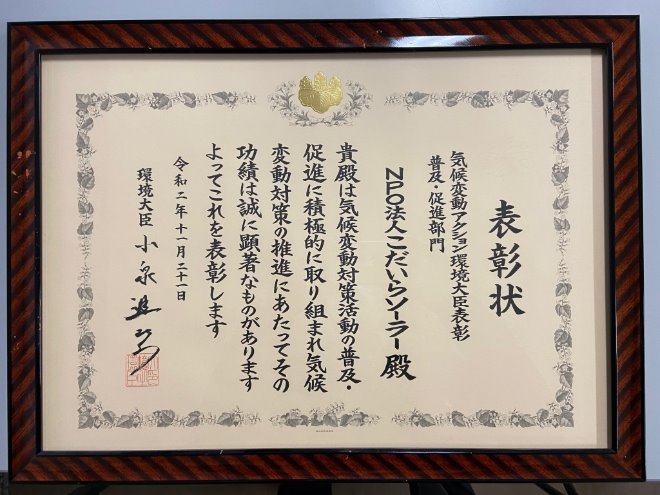 表彰状
気候変動アクション環境大臣表彰
普及・促進部門
NPO法人こだいらソーラー殿
貴殿は気候変動対策活動の普及・
促進に積極的に取り組まれ気候
変動対策の推進にあたってその
功績は誠に顕著なものがあります
よってこれを表彰します
令和二年十一月二十一日
環境大臣 小泉進次郎